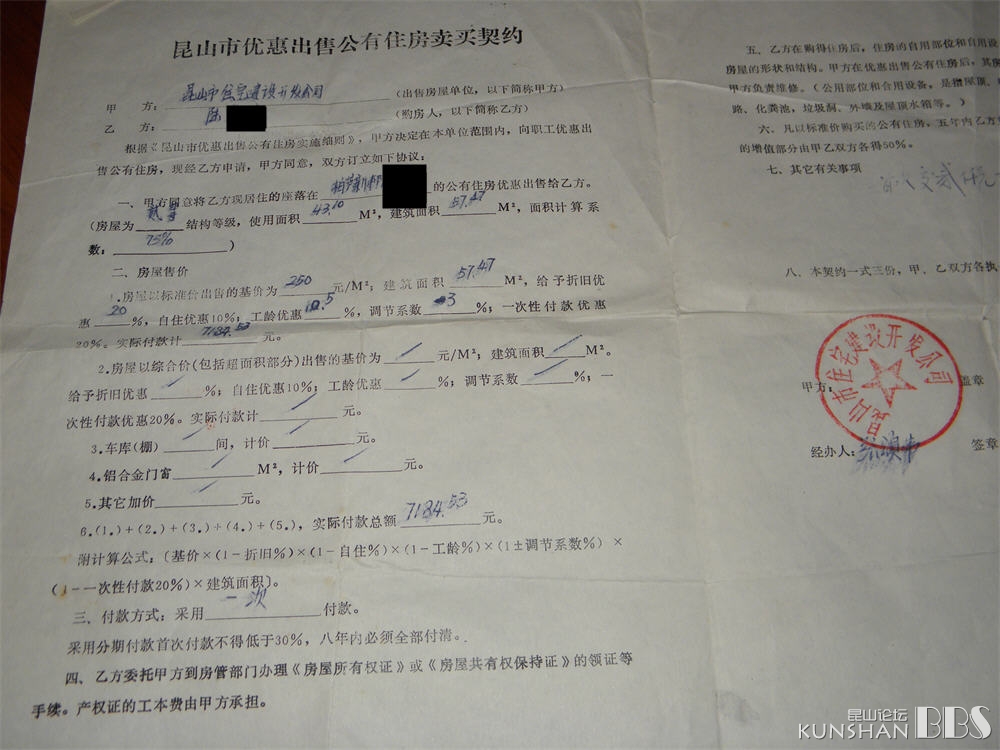 昆山市优惠出售公有住房卖买契约
甲 方：昆山市住宅建设开发公司（出售房屋单位，以下简称甲方）
乙 方：陈（购房人，以下简称乙方）
根据《昆山市优惠出售公有住房实施细则》，甲方决定在本单位范围内，向职工优惠出
售公有住房，现经乙方申请，甲方同意，双方订立如下协议：
一、甲方同意将乙方现居住的座落在 的公有住房优惠出售给乙方。
（房屋为贰等结构等级，使用面积43.10M²，建筑面积57.47M²，面积计算系
数：75%）
二、房屋售价
1.房屋以标准价出售的基价为250元/M²；建筑面积57.47M²，给予折旧优
惠20%，自住优惠10%；工龄优惠 %，调节系数-3%；一次性付款优惠
20%。实际付款计7184.53元。
2.房屋以综合价(包括超面积部分)出售的基价为 元/M²；建筑面积 M²。
给予折旧优惠 %；自住优惠10%；工龄优惠 %；调节系数 %；一
次性付款优惠20%。实际付款计 元。
3.车库(棚) 间，计价 元。
4.铝合金门窗 M²，计价 元。
5.其它加价 元。
6.(1.)+(2.)+(3.)+(4.)+(5.)，实际付款总额7184.53元。
附计算公式：〔基价×(1-折旧%)×(1-自住%)×(1-工龄%)×(1±调节系数%)×
(1-一次性付款20%)×建筑面积〕。
三、付款方式：采用一次付款。
采用分期付款首次付款不得低于30%，八年内必须全部付清。
四、乙方委托甲方到房管部门办理《房屋所有权证》或《房屋共有权保持证》的领证等
手续。产权证的工本费由甲方承担。
五、乙方在购得住房后，住房的自用部位和自用设
房屋的形状和结构。甲方在优惠出售公有住房后，其房
甲方负责维修。（公用部位和合用设备，是指屋顶、
路、化粪池，垃圾洞、外墙及屋顶水箱等。）
六、凡以标准价购买的公有住房，五年内乙方
的增值部分由甲乙双方各得50%。
七、其它有关事项
八、本契约一式三份，甲、乙双方各执
甲方： 盖章
昆山市住宅建设开发公司
经办人： 签章
昆山论坛
KUNSHAN BBS